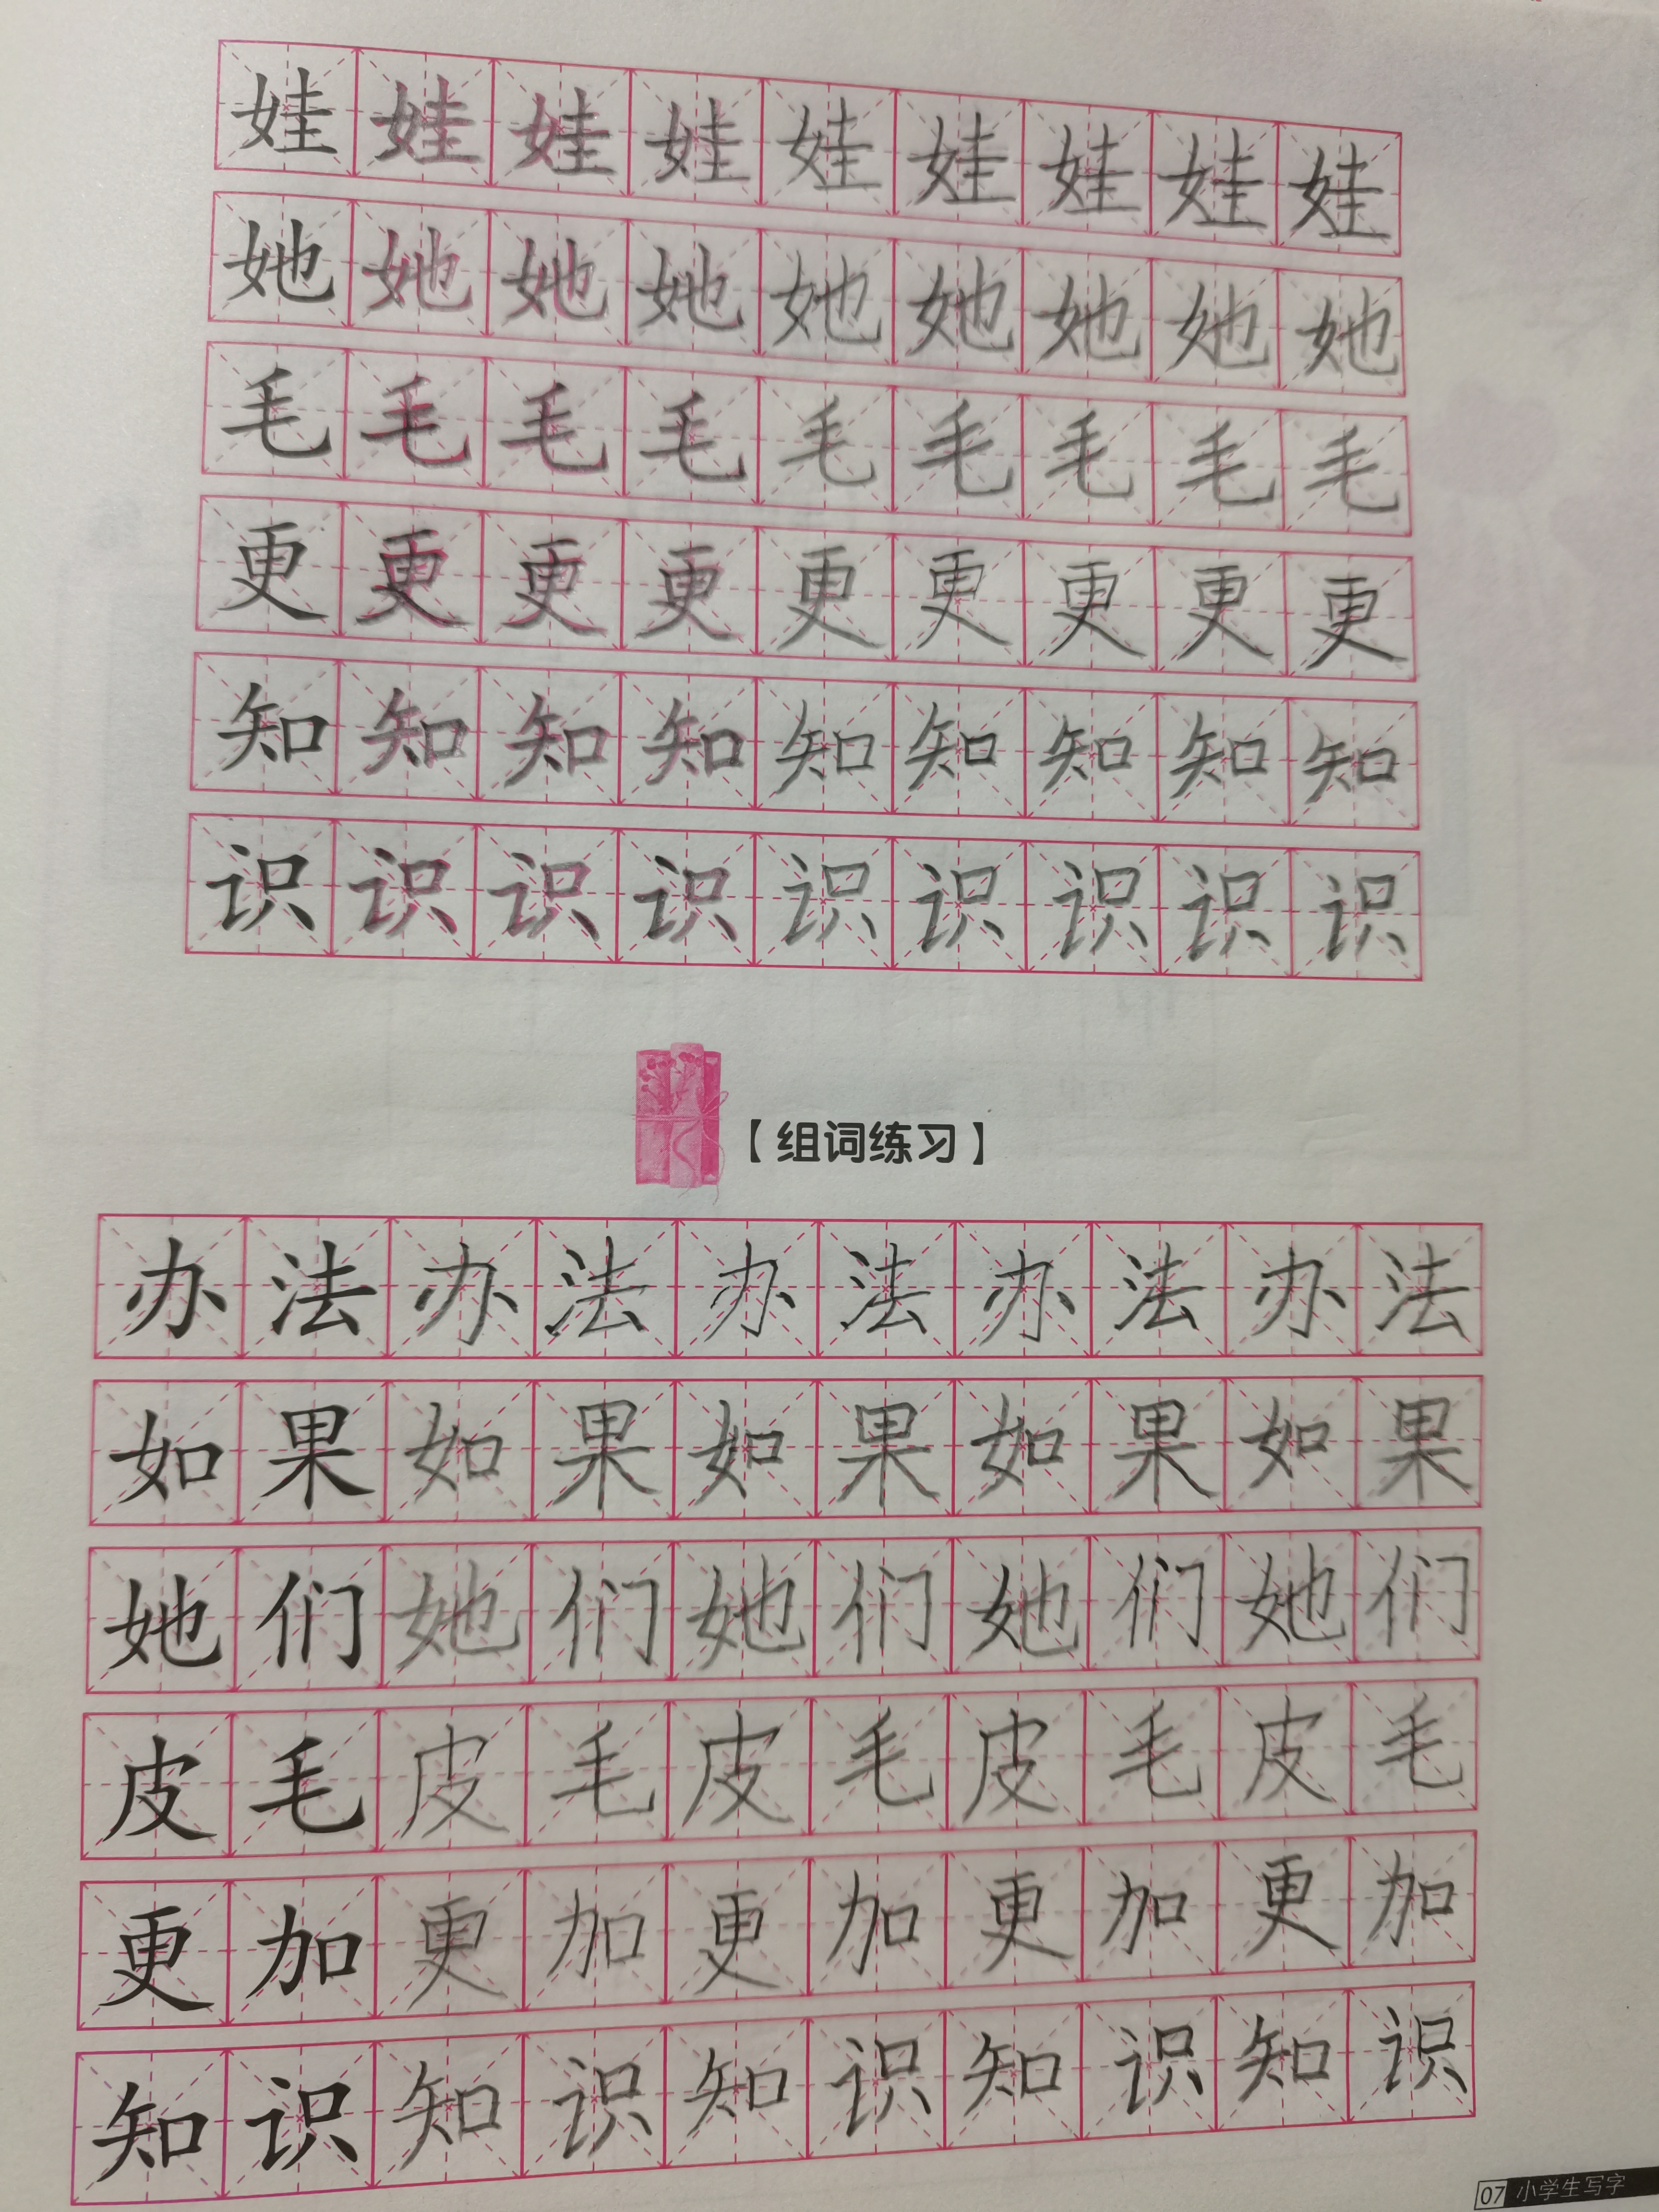 娃娃娃娃娃娃娃娃娃
她她她她她她她她她
毛毛毛毛毛毛毛毛毛
更更更更更更更更更
知知知知知知知知知
识识识识识识识识识
【组词练习】
办法办法办法办法办法
如果如果如果如果如果
她们她们她们她们她们
皮毛皮毛皮毛皮毛皮毛
更加更加更加更加更加
知识知识知识知识知识
07 小学生写字